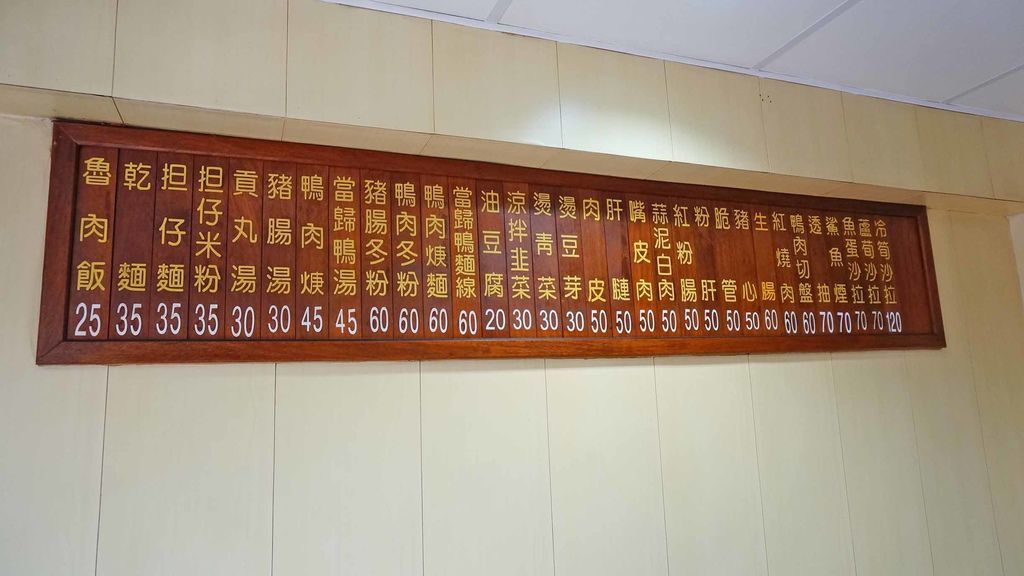 魯肉飯 25
乾麵 35
担仔麵 35
担仔米粉 35
貢丸湯 30
豬腸湯 30
鴨肉焿 45
當歸鴨湯 45
豬腸冬粉 60
鴨肉冬粉 60
鴨肉焿麵 60
當歸鴨麵線 60
油豆腐 20
涼拌韭菜 30
燙青菜 30
燙豆芽 30
肉皮 50
肝 50
嘴皮肉 50
蒜泥白肉 50
紅粉腸 50
粉肝 50
脆管 50
豬心 50
生腸 60
紅燒肉 60
鴨肉切盤 60
透抽 70
鯊魚煙 70
魚蛋沙拉 70
蘆荀沙拉 70
冷筍沙拉 120